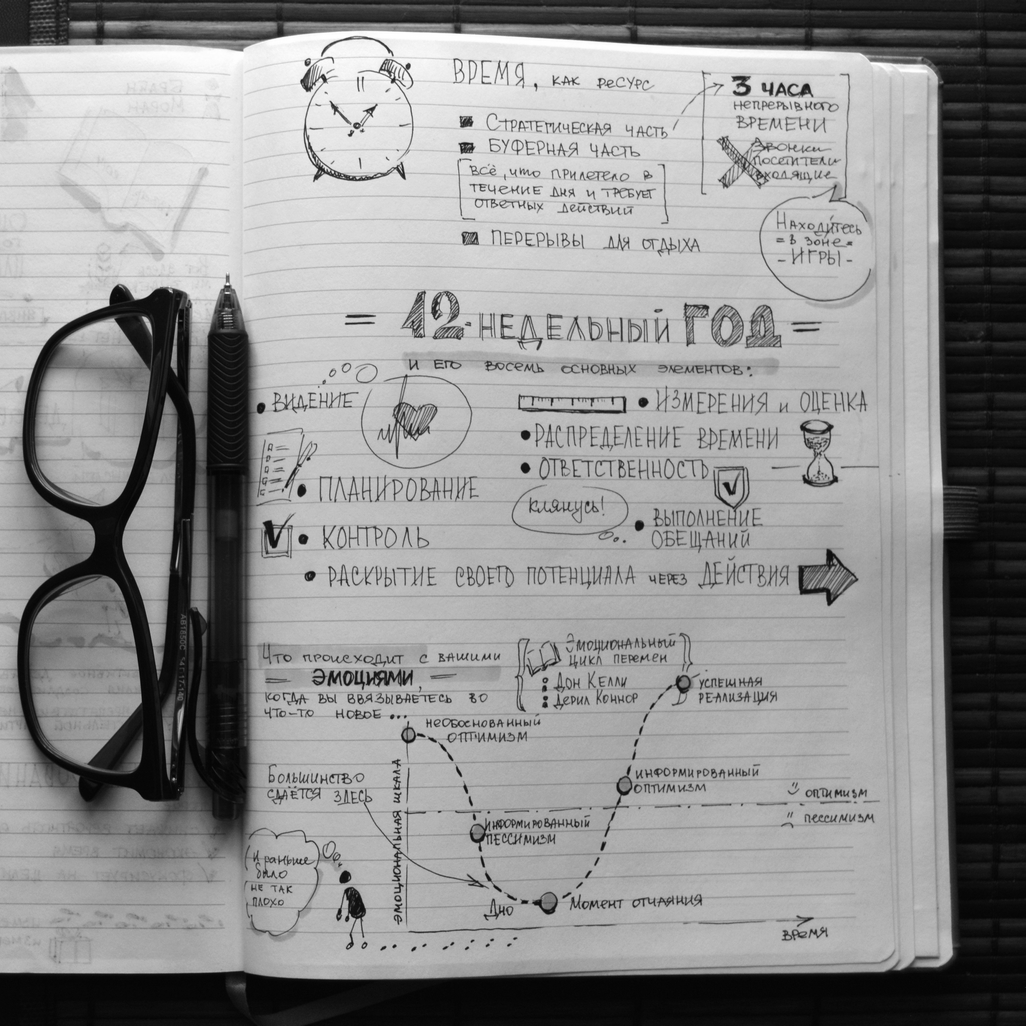 ВРЕМЯ, КАК РЕСУРС
СТРАТЕГИЧЕСКАЯ ЧАСТЬ
БУФЕРНАЯ ЧАСТЬ
[ВСЁ, ЧТО ПРИЛЕТЕЛО В
ТЕЧЕНИЕ ДНЯ И ТРЕБУЕТ
ОТВЕТНЫХ ДЕЙСТВИЙ]
ПЕРЕРЫВЫ ДЛЯ ОТДЫХА
3 ЧАСА
НЕПРЕРЫВНОГО
ВРЕМЕНИ
ЗВОНКИ
ПОСЕТИТЕЛИ
ВХОДЯЩИЕ
НАХОДИТЕСЬ
= В ЗОНЕ =
- ИГРЫ -
= 12-НЕДЕЛЬНЫЙ ГОД =
И ЕГО ВОСЕМЬ ОСНОВНЫХ ЭЛЕМЕНТОВ:
• ВИДЕНИЕ
• ПЛАНИРОВАНИЕ
• КОНТРОЛЬ
• ИЗМЕРЕНИЯ И ОЦЕНКА
• РАСПРЕДЕЛЕНИЕ ВРЕМЕНИ
• ОТВЕТСТВЕННОСТЬ
КЛЯНУСЬ!
• ВЫПОЛНЕНИЕ
ОБЕЩАНИЙ
• РАСКРЫТИЕ СВОЕГО ПОТЕНЦИАЛА ЧЕРЕЗ ДЕЙСТВИЯ
ЧТО ПРОИСХОДИТ С ВАШИМИ
= ЭМОЦИЯМИ, =
КОГДА ВЫ ВВЯЗЫВАЕТЕСЬ ВО
ЧТО-ТО НОВОЕ...
ЭМОЦИОНАЛЬНЫЙ
ЦИКЛ ПЕРЕМЕН
ДОН КЕЛЛИ
ДЕРИЛ КОННОР
НЕОБОСНОВАННЫЙ
ОПТИМИЗМ
УСПЕШНАЯ
РЕАЛИЗАЦИЯ
БОЛЬШИНСТВО
СДАЁТСЯ ЗДЕСЬ
ЭМОЦИОНАЛЬНАЯ ШКАЛА
ИНФОРМИРОВАННЫЙ
ОПТИМИЗМ
ОПТИМИЗМ
ПЕССИМИЗМ
ИНФОРМИРОВАННЫЙ
ПЕССИМИЗМ
И РАНЬШЕ
БЫЛО
НЕ ТАК
ПЛОХО
ДНО
МОМЕНТ ОТЧАЯНИЯ
ВРЕМЯ